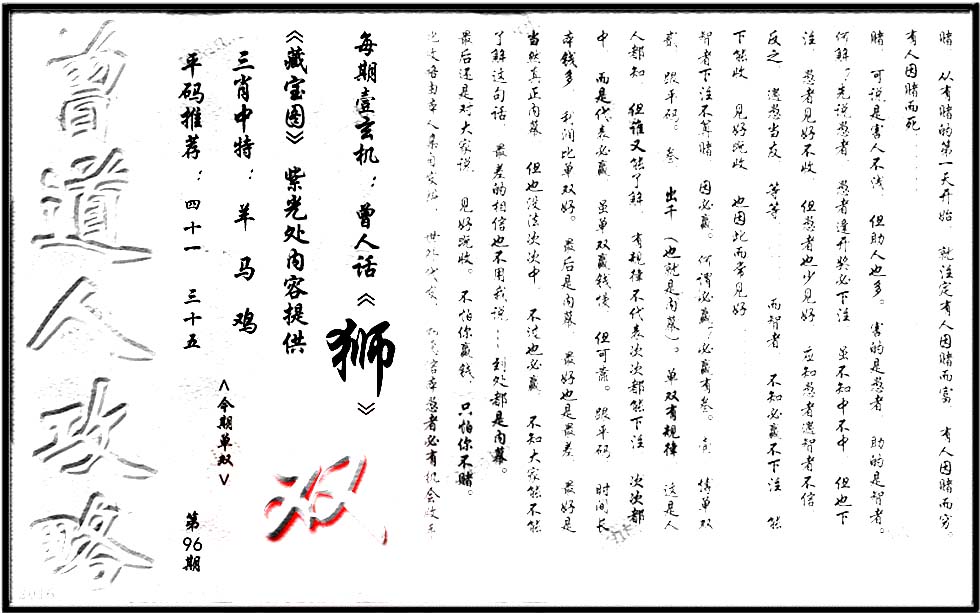 赌 从有赌的第一天开始 就注定有人因赌而富 有人因赌而穷。
有人因赌而死........
赌 可说是害人不浅 但助人也多。害的是愚者 助的是智者。
何解？先说愚者 愚者逢开奖必下注 虽不知中不中 但也下
注 愚者见好不收 但愚者也少见好 应知愚者遇智者不信
反之 遇愚当友 等等...... 而智者 不知必赢不下注 能
下能收 见好就收 也因此而常见好......
智者下注不真赌 因必赢。何谓必赢？必赢有叁。壹 猜单双
贰 跟平码。叁 出千（也就是内幕）。单双有规律 这是人
人都知 但谁又能了解 有规律不代表次次都能下注 次次都
中 而是代表必赢 虽单双赢钱慢 但可靠。跟平码 时间长
本钱多 利润比单双好。最后是内幕 最好也是最差 最好是
当然真正内幕 但也没法次次中 不过也必赢 不知大家能不能
了解这句话 最差的相信也不用我说...到处都是内幕。
最后还是对大家说 见好就收。不怕你赢钱 只怕你不赌。
愚者必有机会收手
每期壹玄机：曾人话《狮》
《藏宝图》紫光处内容提供
三肖中特：羊 马 鸡
平码推荐：四十一 三十五
<今期单双>
双
第96期
曾道人攻略
2016